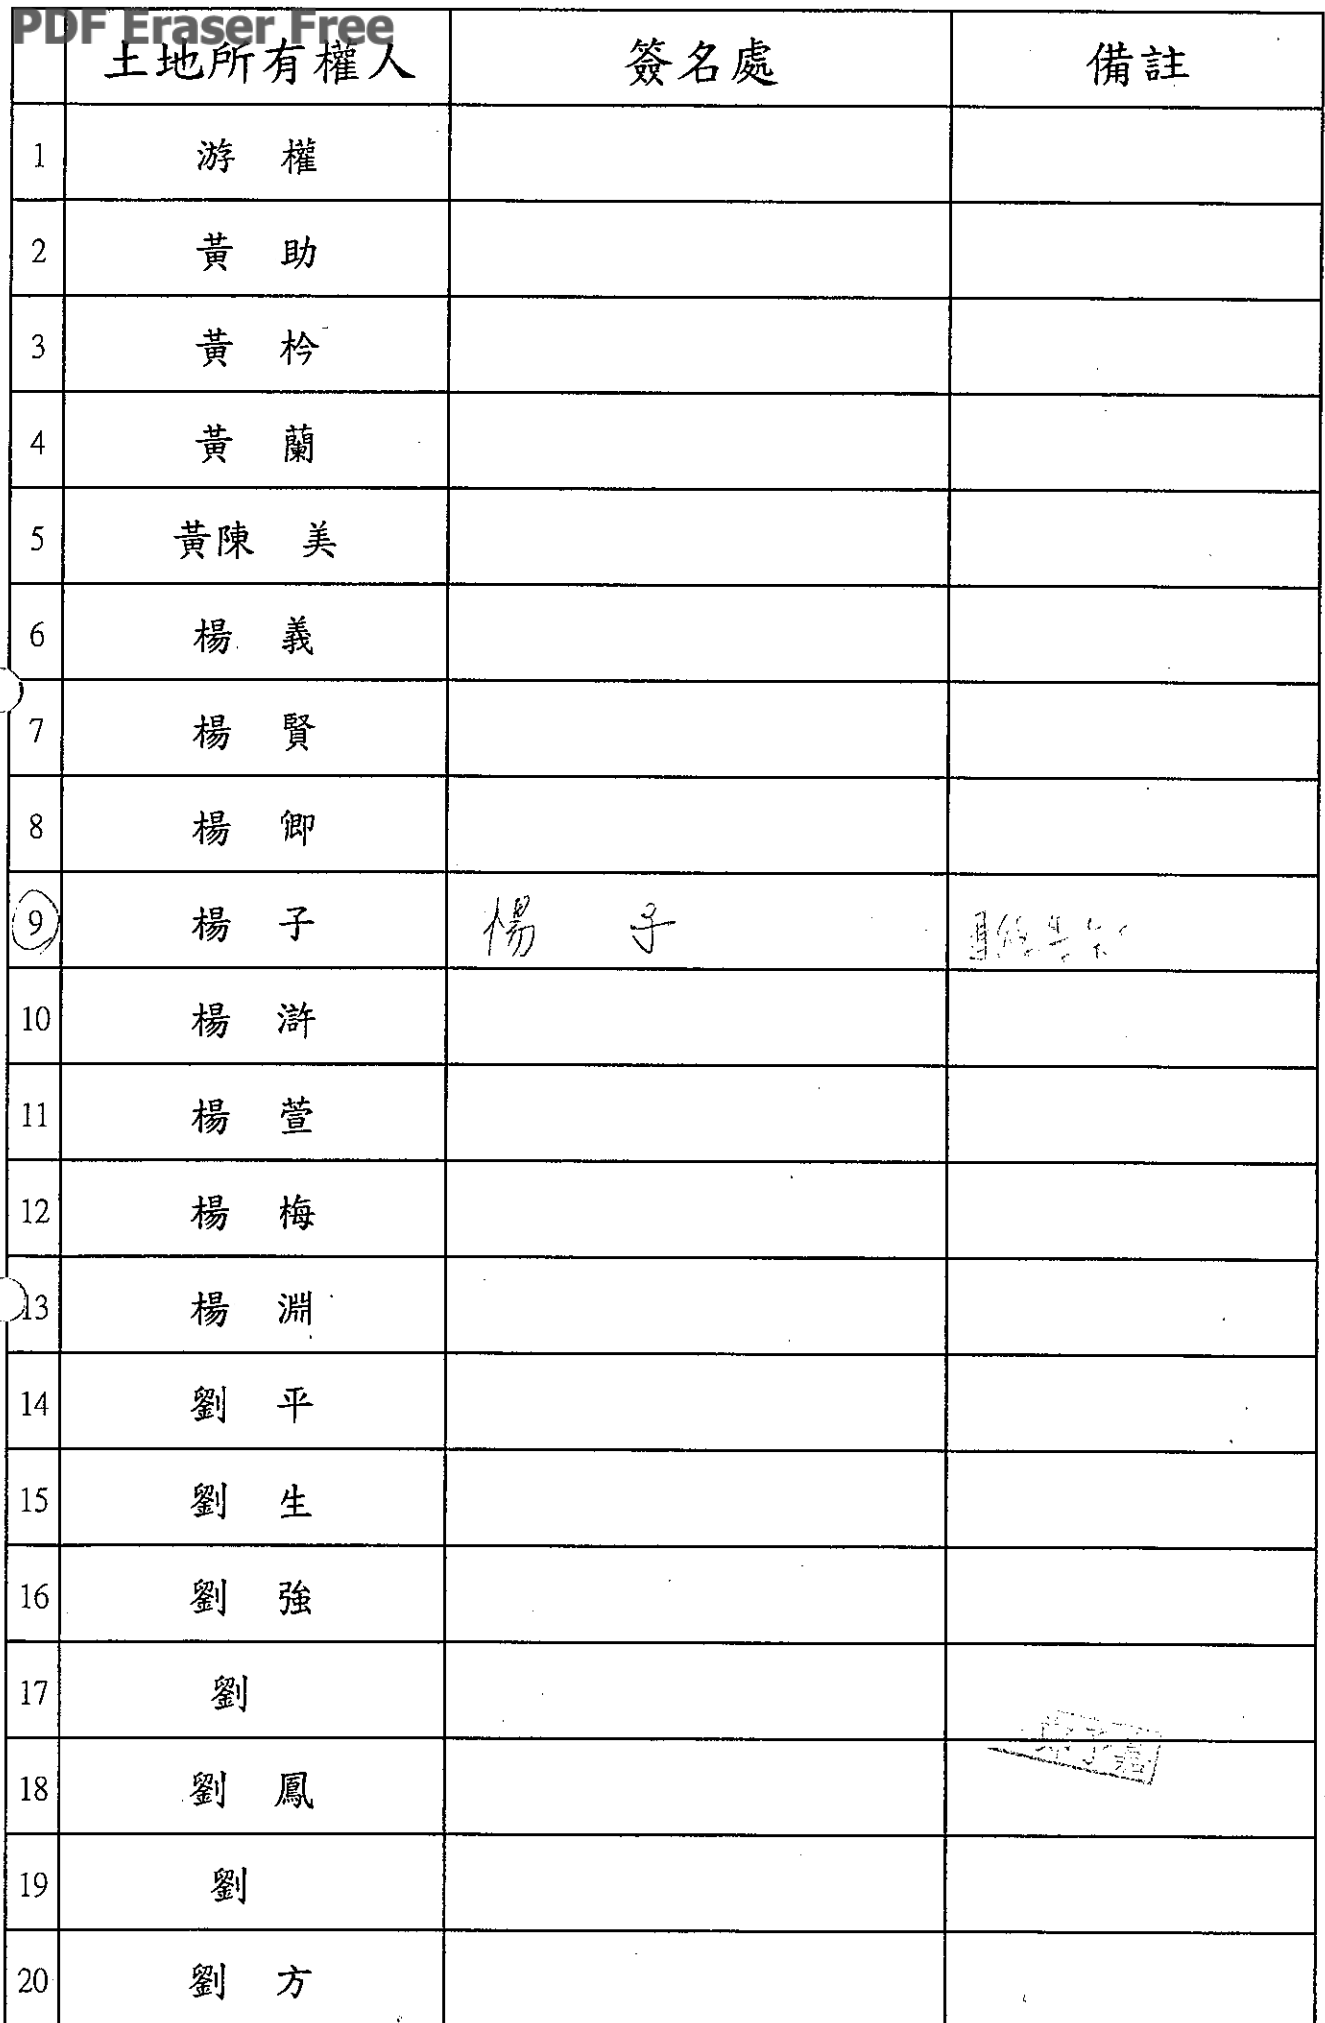 PDF Eraser Free
土地所有權人 簽名處 備註
1 游 權
2 黃 助
3 黃 枔
4 黃 蘭
5 黃陳 美
6 楊 義
7 楊 賢
8 楊 卿
9 楊 子 楊 子
10 楊 滸
11 楊 萱
12 楊 梅
13 楊 淵
14 劉 平
15 劉 生
16 劉 強
17 劉
18 劉 鳳
19 劉
20 劉 方